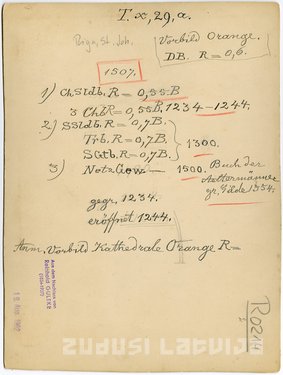 T. x, 29, a.
Riga, St. Joh.
Vorbild Orange.
DB. R = 0,6.
1507.
1) Ch.Sldb. R = 0,55 B
3 Chb R = 0,55 B, 1234–1244.
2) SSldb. R = 0,7 B.
Trb. R = 0,7 B.
SGtb. R = 0,7 B.
1300.
3) Netz Gew — 1500.
Buch der
Aeltermänner
gr. Gilde 1354.
gegr. 1234.
eröffnet 1244.
Anm. Vorbild Kathedrale Orange R =
Aus dem Nachlass von
Reinhold GULEKE
(1834-1927)
R0214
ZUDUSĪ LATVIJA